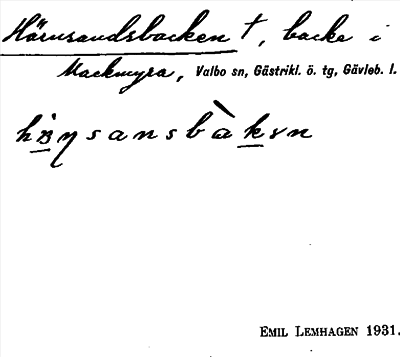 Härnsandsbacken †, backe i
Mackmyra, Valbo sn, Gästrikl. ö. tg, Gävleb. l.
EMIL LEMHAGEN 1931.